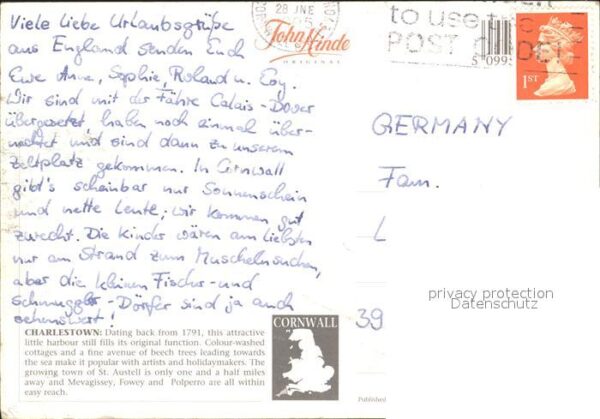 Viele liebe Urlaubsgrüße
aus England senden Euch
Eure Anna, Sophie, Roland u.
Wir sind mit der Fähre Calais-Dover
übergesetzt, haben noch einmal über-
nachtet und sind dann zu unserem
Zeltplatz gekommen. In Cornwall
gibt's scheinbar nur Sonnenschein
und nette Leute; wir kommen gut
zurecht. Die Kinder wären am liebsten
nur am Strand zum Muschelnsuchen,
aber die kleinen Fischer- und
Schmuggler-Dörfer sind ja auch
sehenswert!
CHARLESTOWN: Dating back from 1791, this attractive
little harbour still fills its original function. Colour-washed
cottages and a fine avenue of beech trees leading towards
the sea make it popular with artists and holidaymakers. The
growing town of St. Austell is only one and a half miles
away and Mevagissey, Fowey and Polperro are all within
easy reach.
CORNWALL
28 JNE
John Hinde
ORIGINAL
to use the
POST CODE
5 0995
1ST
GERMANY
Fam.
L
39
privacy protection
Datenschutz
Published